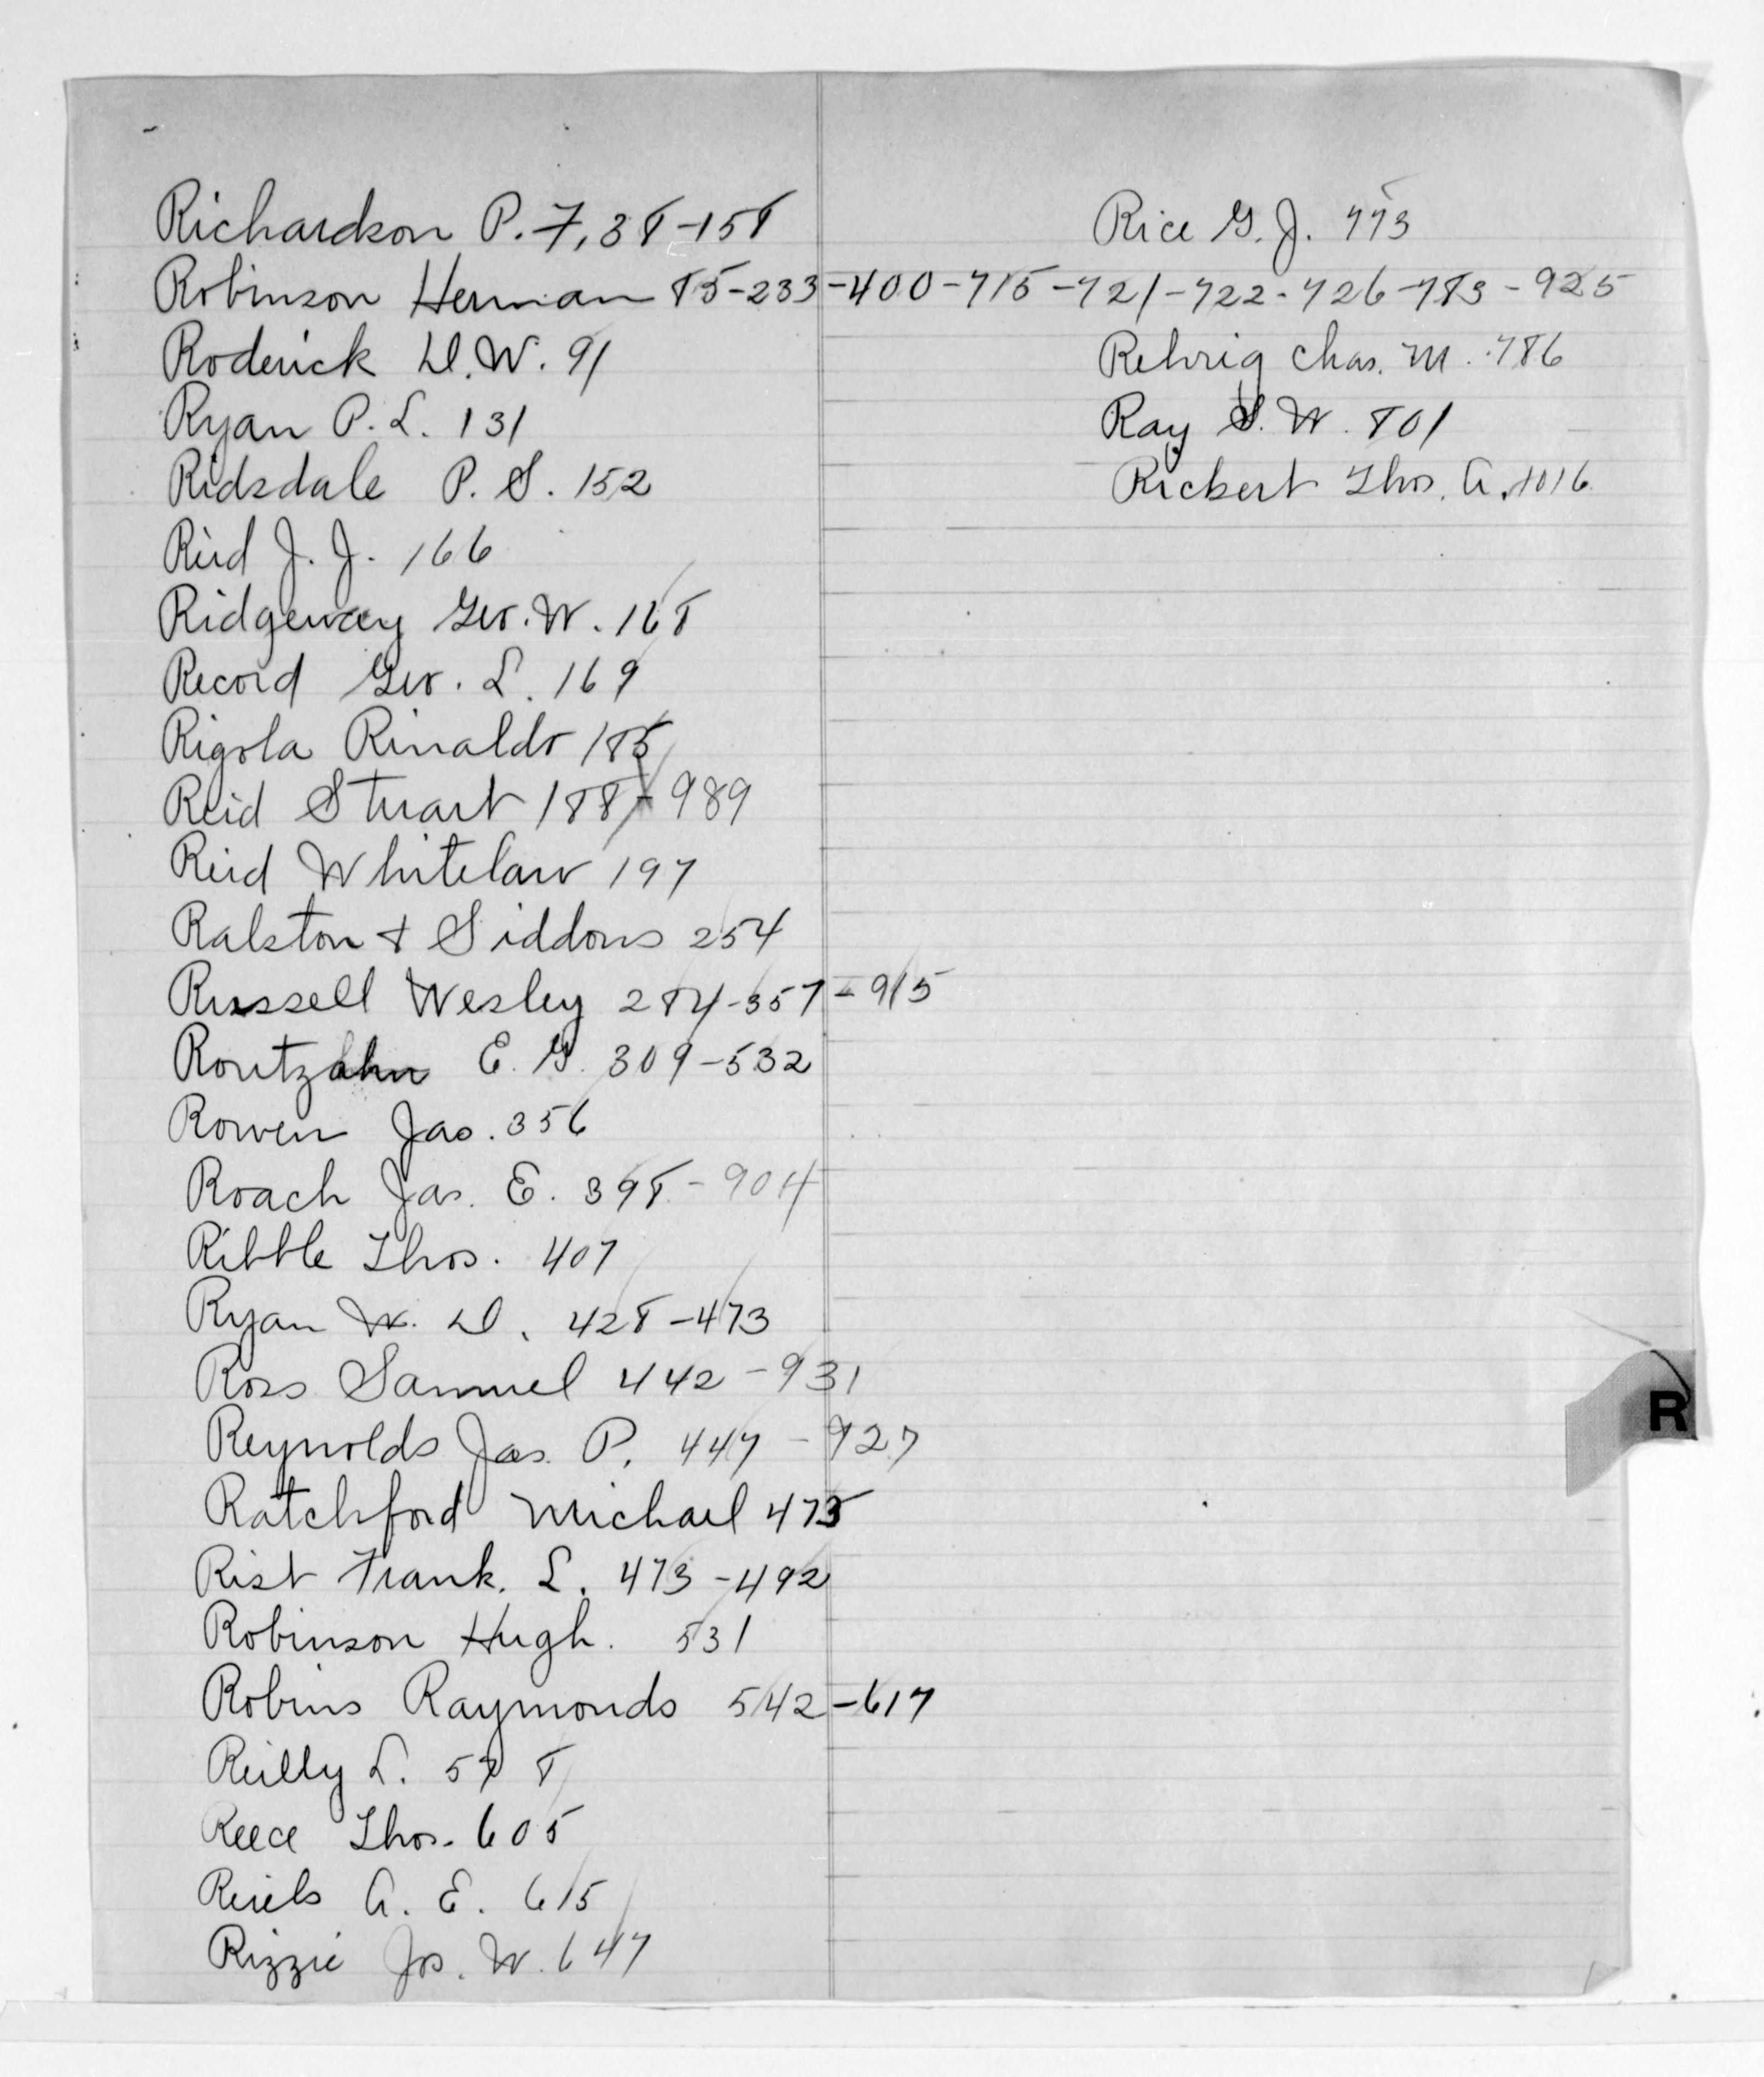 Richardson P. F. 38-158
Robinson Herman 85-233-400-715-721-722-726-783-925
Roderick D. W. 91
Ryan P. L. 131
Ridsdale P. S. 152
Reid J. J. 166
Ridgeway Geo. W. 168
Record Geo. L. 169
Rigola Rinaldo 185
Reid Stuart 188-989
Reid Whitelaw 197
Ralston & Siddons 254
Russell Wesley 284-357-915
Routzahn E. G. 309-532
Rowen Jas. 356
Roach Jas. E. 398-904
Ribble Thos. 407
Ryan W. D. 428-473
Ross Samuel 442-931
Reynolds Jas. P. 447-927
Ratchford Michael 473
Rist Frank. L. 473-492
Robinson Hugh. 531
Robins Raymonds 542-617
Reilly L. 578
Reece Thos. 605
A. E. 615
Rizzie Jos. W. 647
Rice G. J. 773
Rehrig Chas. M. 786
Ray S. W. 801
Rickert Thos. A. 1016
R